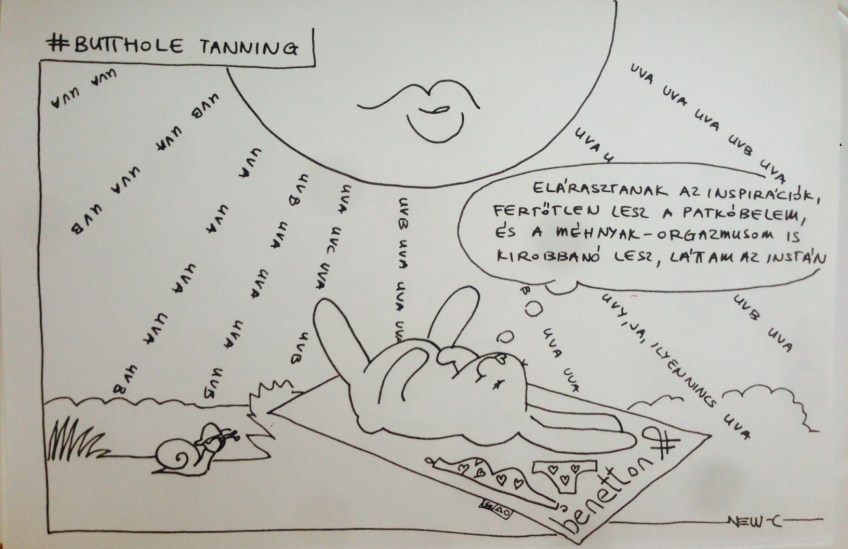 #BUTTHOLE TANNING
UVA UVA
UVB UVA UVA UVB
UVA UVA UVA UVB
UVB UVA UVA UVA UVB
UVA UVC UVA UVB
UVB UVA UVA UVA
UVA U
UVA UVA UVA UVB UVA
ELÁRASZTANAK AZ INSPIRÁCIÓK,
FERTŐTLEN LESZ A PATKÓBELEM,
ÉS A MÉHNYAK-ORGAZMUSOM IS
KIROBBANÓ LESZ, LÁTTAM AZ INSTÁN
B UVA UVA
UVY, JA, ILYEN NINCS UVA
UVB UVA
#benetton
NEW-C